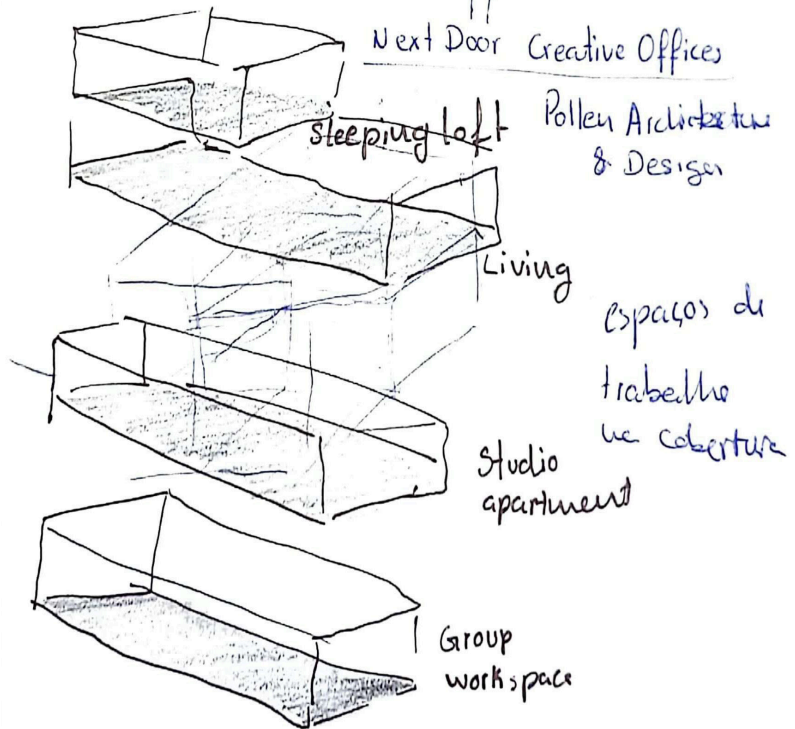 Next Door Creative Offices
Pollen Architecture
& Design
Sleeping loft
Living
espaços de
trabalho
na cobertura
Studio
apartment
Group
workspace